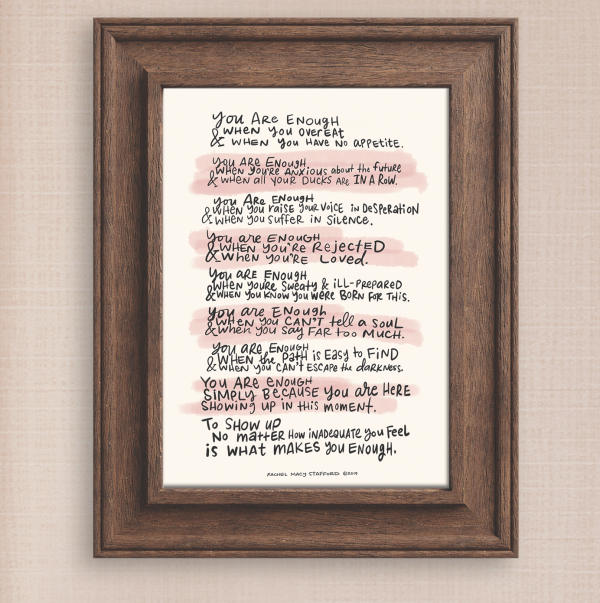 You Are Enough
& when you overeat
& when you have no appetite.
you Are Enough
& when you're Anxious about the future
& when all your Ducks Are IN A ROW.
you Are Enough
& when you raise your voice in Desperation
& when you suffer in silence.
you are Enough
& when you're Rejected
& when you're Loved.
You are Enough
& when you're sweaty & ill-prepared
& when you know you were BORN FOR THIS.
you are Enough
& when you CAN'T tell a soul
& when you say FAR too MUCH.
you are Enough
& when the path is Easy to Find
& when you CAN'T ESCAPE the darkness.
You Are enough
Simply Because you are Here
showing up in this moment.
To Show up
No matter How inadequate you feel
is what makes you Enough.
RACHEL MACY STAFFORD ©2019